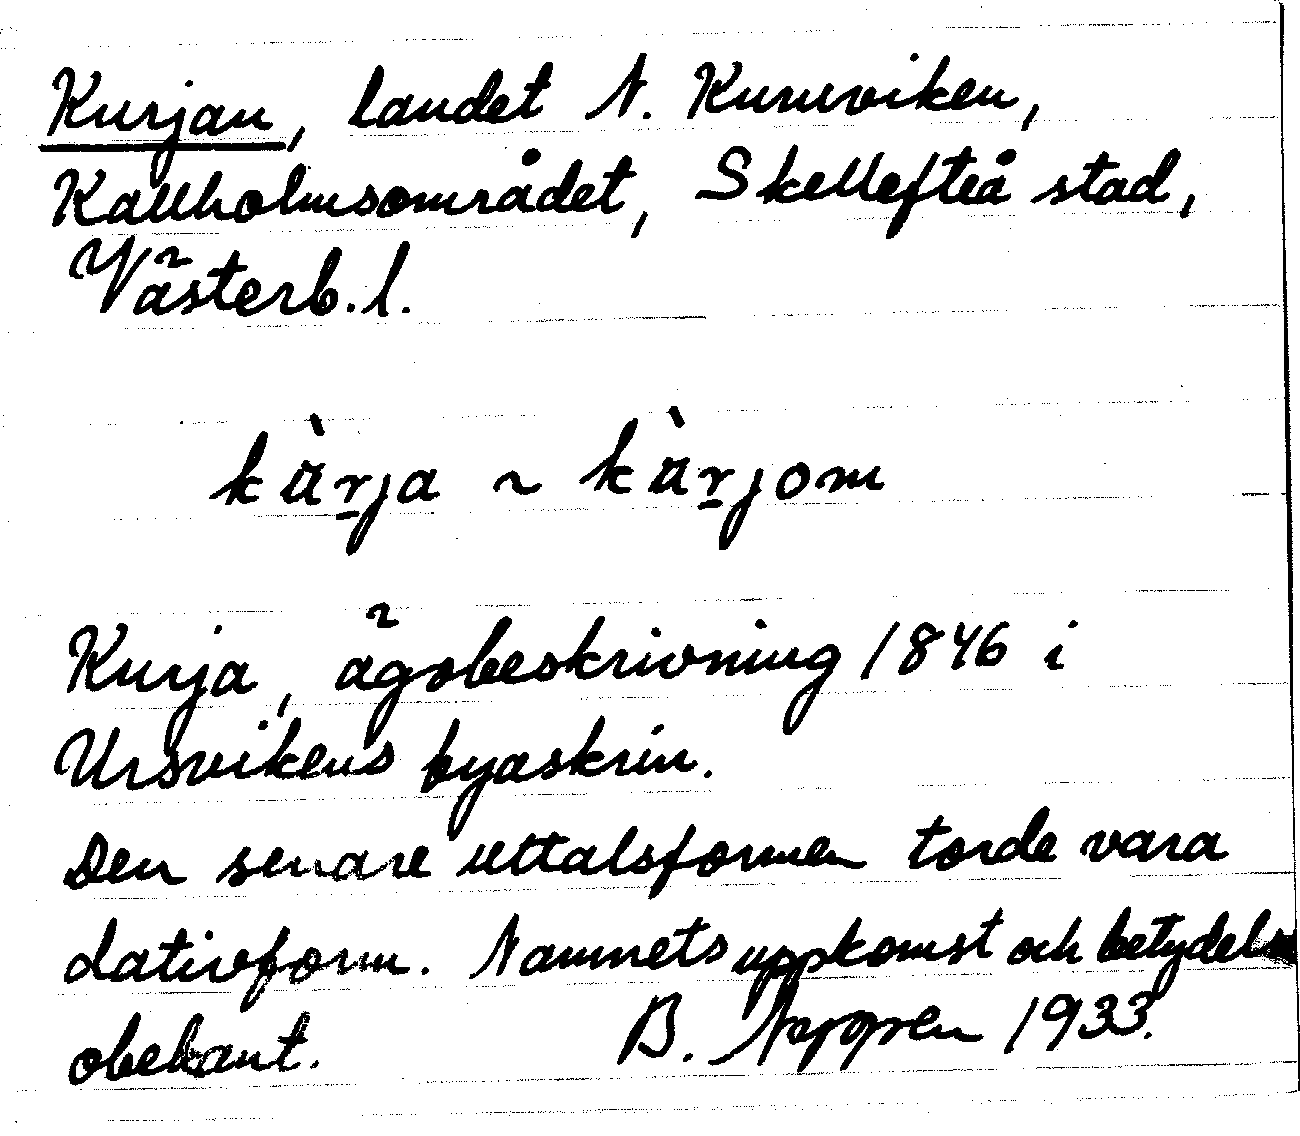 Kurjan, landet N. Kuruviken,
Kallholmsområdet, Skellefteå stad,
Västerb.l.
kùrja ~ kùrjom
Kurja, ägobeskrivning 1846 i
Ursvikens byaskrin.
Den senare uttalsformen torde vara
dativform. Namnets uppkomst och betydelse
obekant. B. 1933.